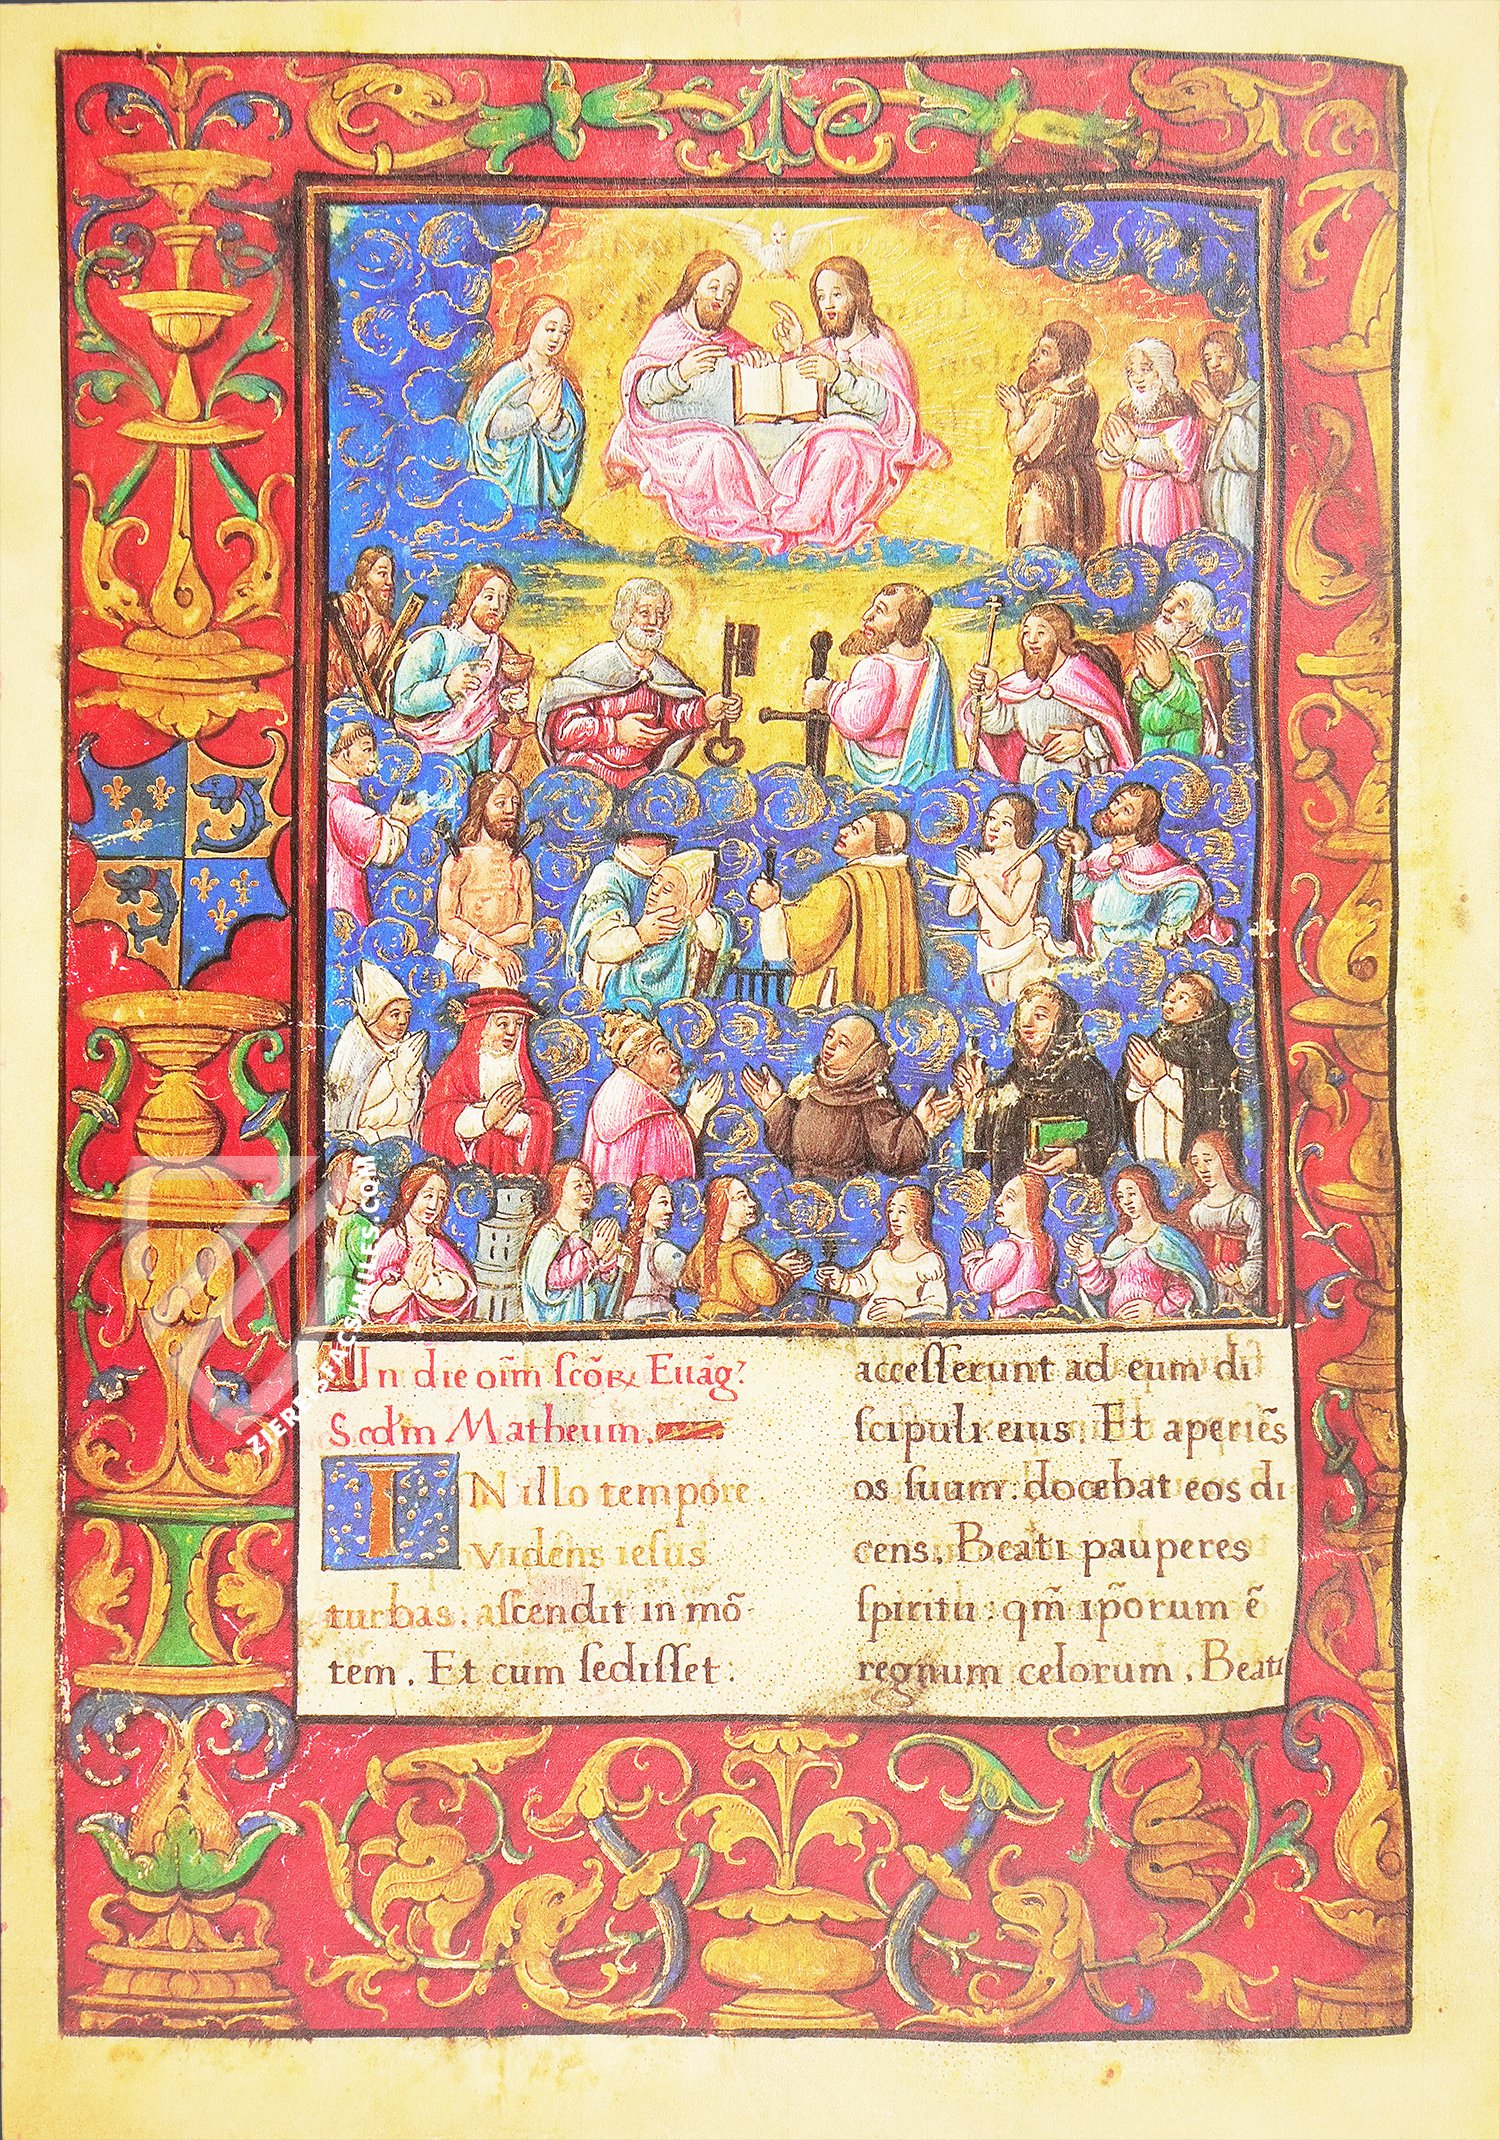 In die oīm scōꝝ Euāg?
S. cdm Matheum.
IN illo tempore
videns iesus
turbas. ascendit in mō
tem. Et cum sedisset:
accesserunt ad eum di
scipuli eius. Et aperiēs
os suum: docebat eos di
cens. Beati pauperes
spiritu: qm̄ ip̄orum ē
regnum celorum. Beati
ZIEREIS FACSIMILES.COM